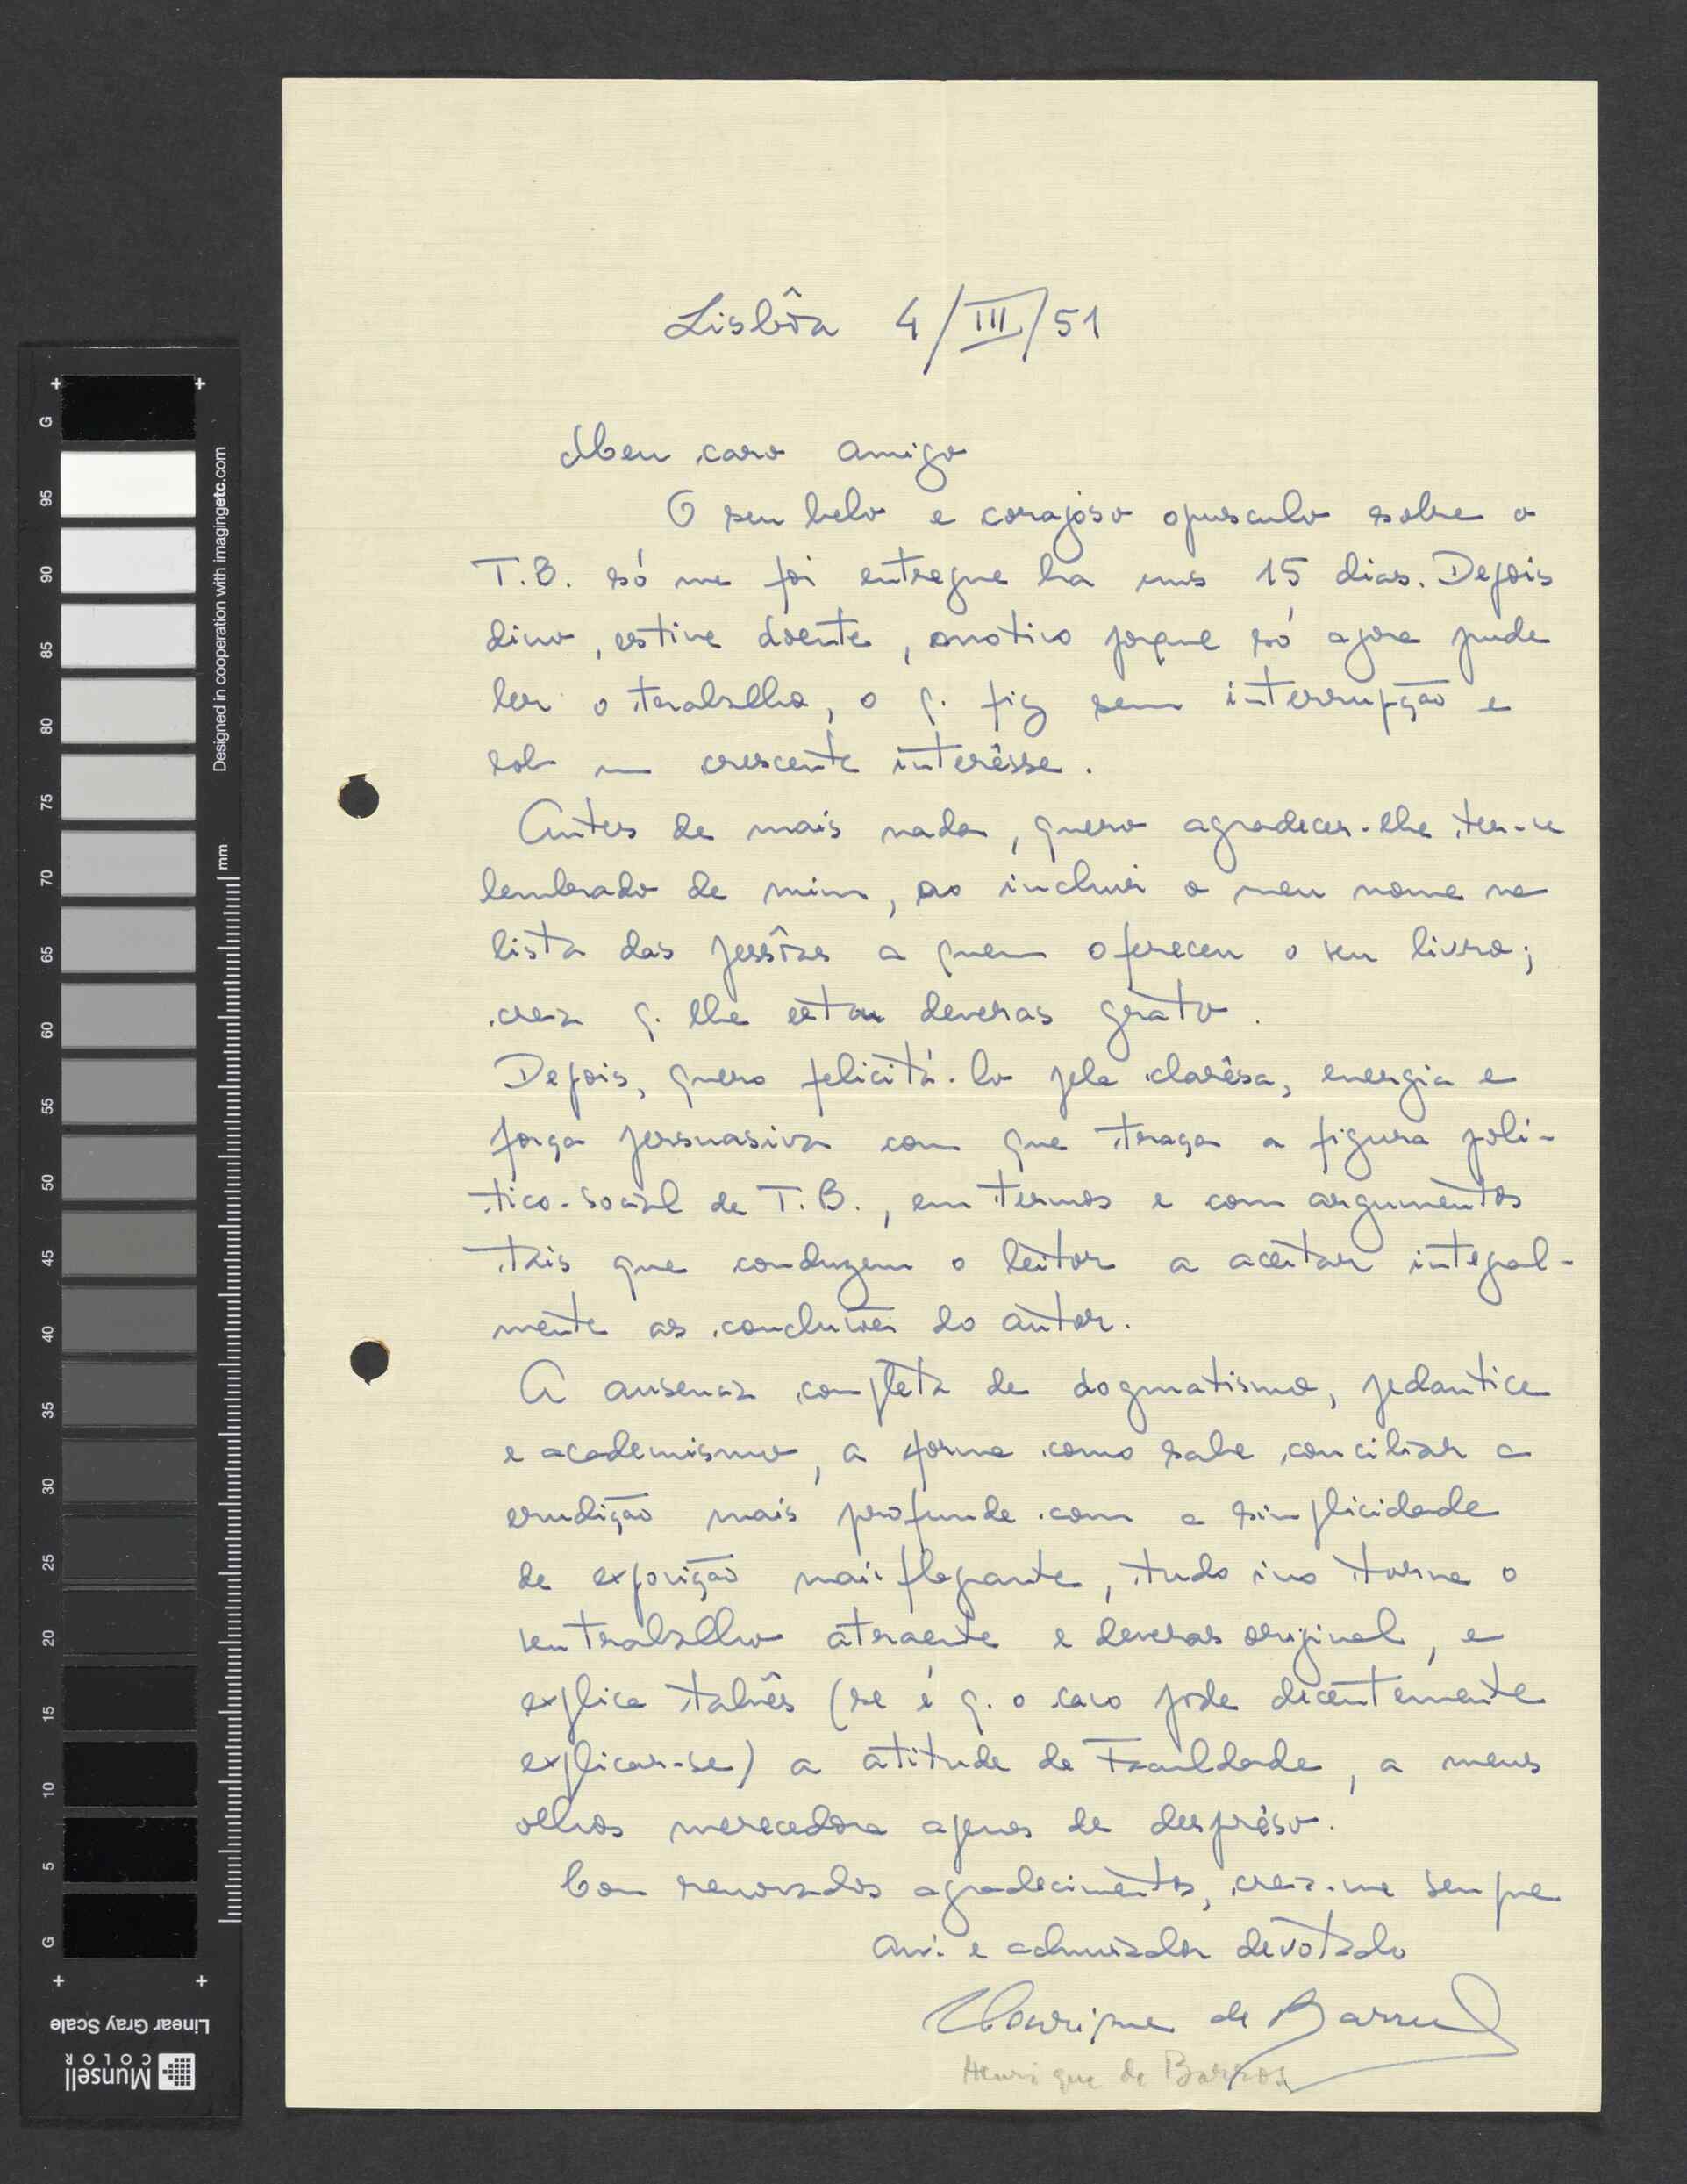 Lisbôa 4/III/51
Meu caro amigo
O seu belo e corajoso opusculo sobre o
T.B. só me foi entregue ha uns 15 dias. Depois
disso, estive doente, motivo porque só agora pude
ler o trabalho, o q. fiz sem interrupção e
sob um crescente interêsse.
Antes de mais nada, quero agradecer-lhe ter-se
lembrado de mim, ao incluir o meu nome na
lista das pessôas a quem ofereceu o seu livro;
creia q. lhe estou deveras grato.
Depois, quero felicitá-lo pela clarêsa, energia e
força persuasiva com que traça a figura poli-
tico-social de T.B., em termos e com argumentos
tais que conduzem o leitor a aceitar integral-
mente as conclusões do autor.
A ausencia completa de dogmatismo, pedantice
e academismo, a forma como sabe conciliar a
erudição mais profunda com a simplicidade
de exposição mais flagrante, tudo isso torna o
seu trabalho atraente e deveras original, e
explica talvês (se é q. o caso pode decentemente
explicar-se) a atitude da Faculdade, a meus
olhos merecedora apenas de desprêso.
Com renovados agradecimentos, creia-me sempre
am.º e admirador devotado
Henrique de Barros
Henrique de Barros
G
95
90
85
80
75
70
65
60
55
50
45
40
35
30
25
20
15
10
5
G
Designed in cooperation with imagingetc.com
mm
Linear Gray Scale
Munsell
COLOR